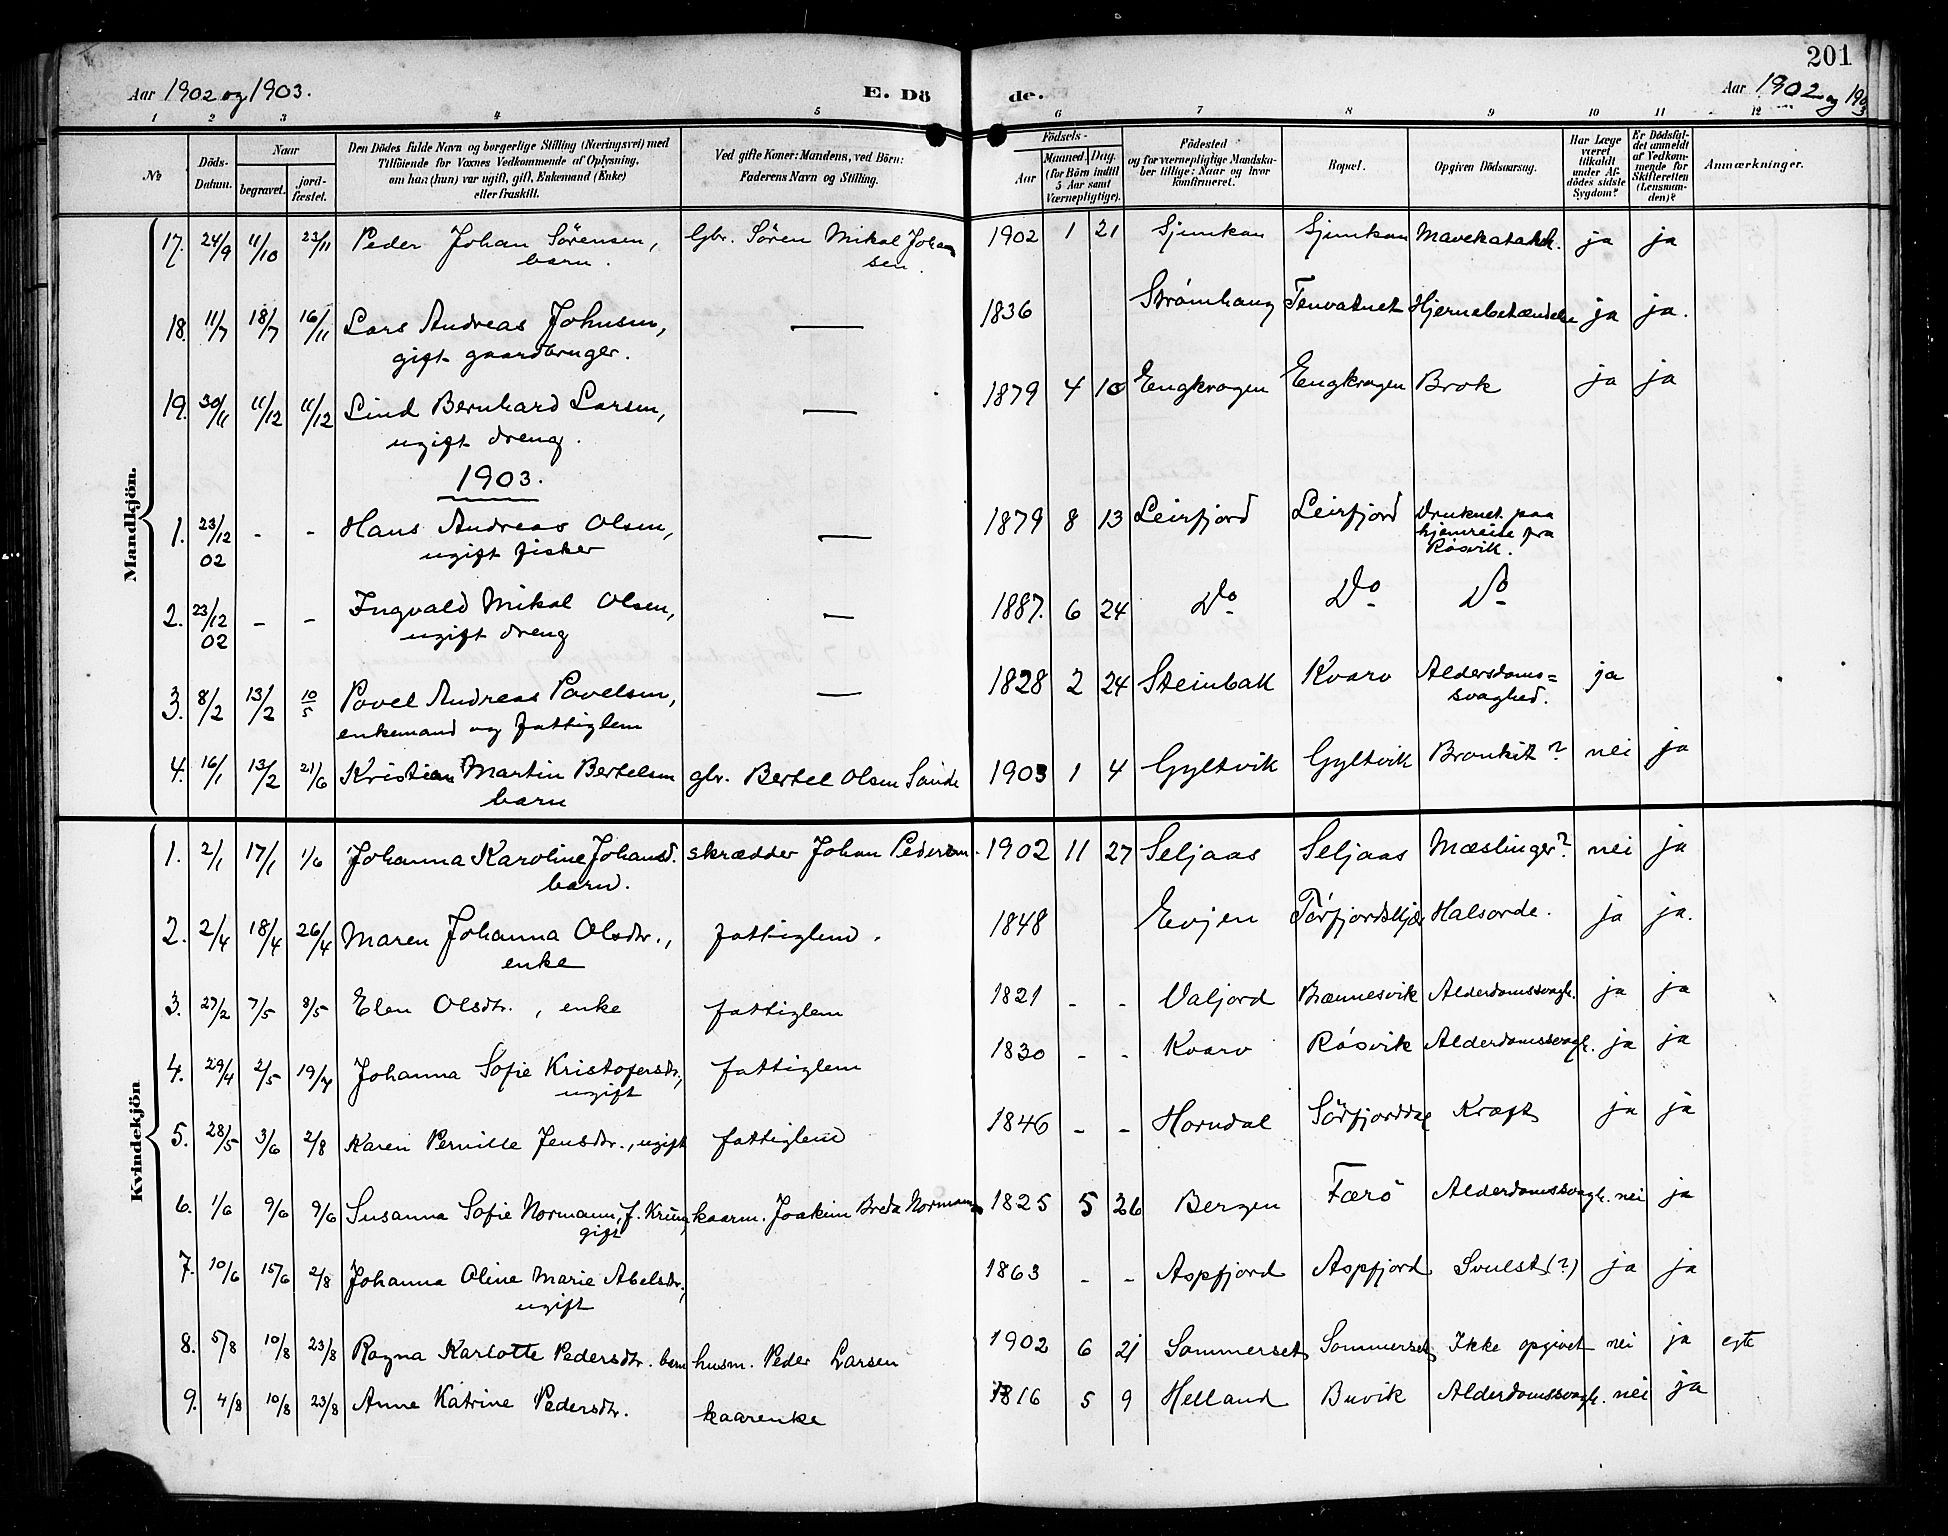 201
Aar 1902 og 1903.
E. Dö
de.
Aar 1902 og 1903
1 2 3 4 5 6 7 8 9 10 11 12
No
Döds-Datum.
Naar
begravet.
jord-fæstet.
Den Dödes fulde Navn og borgerlige Stilling (Næringsvei) med
Tilföiende for Voxnes Vedkommende af Oplysning,
om han (hun) var ugift, gift, Enkemand (Enke)
eller fraskilt.
Ved gifte Koner: Mandens, ved Börn:
Faderens Navn og Stilling.
Födsels-
Aar
Maaned. Dag.
(for Börn indtil
5 Aar samt
Værnepligtige).
Födested
og for værnepligtige Mandska-
ber tillige: Naar og hvor
konfirmeret.
Bopæl.
Opgiven Dödsaarsag.
Har Læge
været
tilkaldt
under Af-
dödes sidste
Sygdom?
Er Dödsfal-
det anmeldt
af Vedkom-
mende for
Skifteretten
(Lensman-
den)?
Anmærkninger.
Mandkjön.
17. 24/9 11/10 23/11 Peder Johan Sørensen, Gbr. Sören Mikal Johan 1902 1 21 Sjunkan Sjunkan Mavekatarrh. ja ja
barn. sen.
18. 11/7 18/7 16/11 Lars Andreas Johnsen, — 1836 Strømhaug Tenvatnet Hjernebetændelse ja ja.
gift gaardbruger.
19. 30/11 11/12 11/12 Lind Bernhard Larsen, — 1879 4 10 Engkrogen Engkrogen Brok ja ja
ugift dreng.
1903.
1. 23/12 02 - - Hans Andreas Olsen, — 1879 8 13 Leirfjord Leirfjord Druknet paa
ugift fisker hjemreise fra
Røsvik.
2. 23/12 02 - - Ingvald Mikal Olsen, — 1887. 6 24 Do Do Do
ugift dreng
3. 8/2 13/2 10/5 Povel Andreas Povelsen, — 1828 2 24 Steinbak Kvarv Alderdoms= ja
enkemand og fattiglem svaghed.
4. 16/1 13/2 21/6 Kristian Martin Bertelsen gbr. Bertel Olsen Sande 1903 1 4 Gyltvik Gyltvik Bronkit? nei ja
barn
Kvindekjön
1. 2/1 17/1 1/6 Johanna Karoline Johansd. skrædder Johan Pedersen. 1902 11 27 Seljaas Seljaas Mæslinger? nei ja
barn.
2. 2/4 18/4 26/4 Maren Johanna Olsdtr., fattiglem. 1848 Evjen Tørfjordskjær Halsorde. ja ja.
enke
3. 27/2 7/5 8/5 Elen Olsdtr., enke fattiglem 1821 - - Valjord Brænnesvik Alderdomssvagh. ja ja
4. 29/4 2/5 19/7 Johanna Sofie Kristofersdtr., fattiglem 1830 - - Kvarv Røsvik Alderdomssvagh. ja ja
ugift
5. 28/5 3/6 2/8 Karen Pernille Jensdtr., ugift fattiglem 1846 - - Horndal Sörfjorddal Kræft ja ja
6. 1/6 9/6 9/6 Susanna Sofie Normann, f. Krüng, kaarm. Joakim Breda Normann 1825 5 26 Bergen Færö Alderdomssvagh. nei ja
gift
7. 10/6 15/6 2/8 Johanna Oline Marie Abelsdtr., 1863 - - Aspfjord Aspfjord Svulst (?) ja ja
ugift
8. 5/8 10/8 23/8 Ragna Karlotte Pedersdtr. barn husm. Peder Larsen 1902 6 21 Sommerset Sommerset Ikke opgivet nei ja egte
9. 4/8 10/8 23/8 Anne Katrine Pedersdtr. kaarenke 1816 5 9 Helland Buvik Alderdomssvagh. nei ja